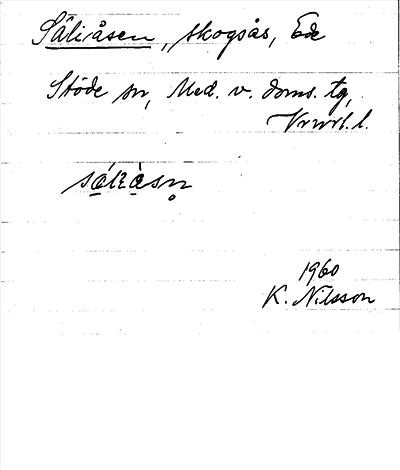 Säliåsen, skogsås, Ede
Stöde sn, Med. v. doms. tg,
Vnrrl. l.
1960
K. Nilsson